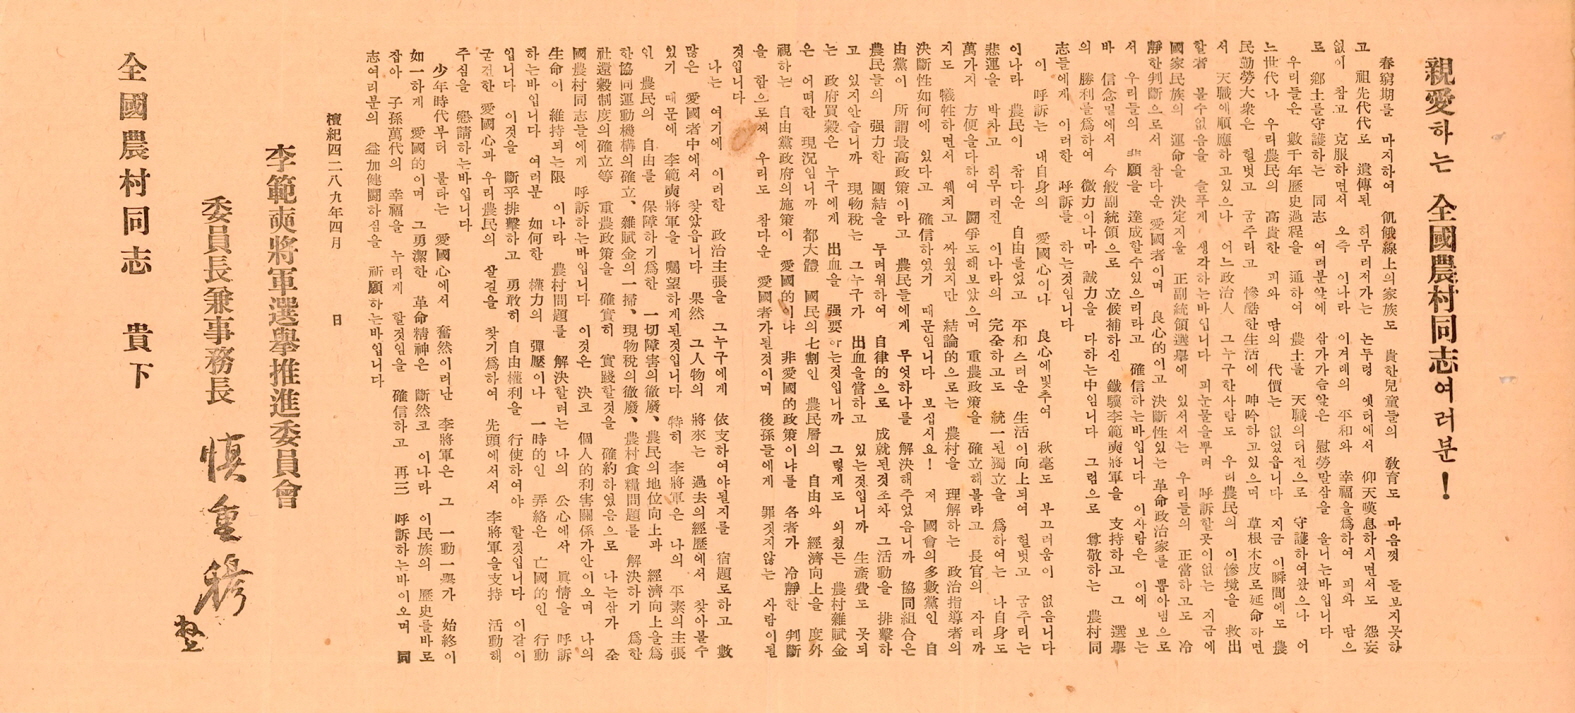 親愛하는 全國農村同志여러분!
春窮期를 마지하여 飢餓線上의家族도 貴한兒童들의 敎育도 마음껏 돌보지못하
고 祖先代代로 遺傳된 허무러져가는 논두렁 옛터에서 仰天嘆息하시면서도 怨妄
없이 참고 克服하면서 오즉 이나라 이겨레의 平和와 幸福을爲하여 피와 땀으
로 鄕土를守護하는 同志 여러분앞에 삼가가슴앞은 慰勞말삼을 올니는바입니다
우리들은 數千年歷史過程을 通하여 農土를 天職의터전으로 守護하여왔으나 어
느世代나 우리農民의 高貴한 피와 땀의 代價는 없었읍니다 지금 이瞬間에도 農
民勤勞大衆은 헐벗고 굼주리고 慘酷한生活에 呻吟하고있으며 草根木皮로延命하면
서 天職에順應하고있으나 어느政治人 그누구한사람도 우리農民의 이慘境을 救出
할者 볼수없음을 슬푸게 생각하는바입니다 피눈물을뿌려 呼訴할곳이없는 지금에
國家民族의 運命을 決定지을 正副統領選擧에 있서서는 우리들의 正當하고도 冷
靜한判斷으로서 참다운愛國者이며 良心的이고決斷性있는 革命政治家를 뽑아냄으로
서 우리들의 悲願을 達成할수있으리라고 確信하는바입니다 이사람은 이에 보는
바 信念밑에서 今般副統領으로 立候補하신 鐵驥李範奭將軍을 支持하고 그 選擧
의 勝利를爲하여 微力이나마 誠力을 다하는中입니다 그럼으로 尊敬하는 農村同
志들에게 이러한 呼訴를 하는것입니다
이 呼訴는 내自身의 愛國心이나 良心에빛추여 秋毫도 부끄러움이 없음니다
이나라 農民이 참다운 自由를얻고 平和스러운 生活이向上되여 헐벗고 굼주리는
悲運을 박차고 허무러진 이나라의 完全하고도 統一된獨立을 爲하여는 나自身도
萬가지 方便을다하여 鬪爭도해보았으며 重農政策을 確立해볼랴고 長官의 자리까
지도 犧牲하면서 웨치고 싸웠지만 結論的으로는 農村을 理解하는 政治指導者의
決斷性如何에 있다고 確信하였기 때문입니다 보십시요! 저 國會의多數黨인 自
由黨이 所謂最高政策이라고 農民들에게 무엇하나를 解決해주었음니까 協同組合은
農民들의 强力한 團結을 두려워하여 自律的으로 成就된것조차 그活動을 排擊하
고 있지안습니까 現物稅는 그누구가 出血을當하고 있는것입니까 生產費도 못되
는 政府買穀은 누구에게 出血을 强要하는것입니까 그렇게도 외첬든 農村雜賦金
은 어떠한 現況입니까 都大體 國民의七割인 農民層의 自由와 經濟向上을 度外
視하는 自由黨政府의施策이 愛國的이냐 非愛國的政策이냐를 各者가 冷靜한 判斷
을 함으로써 우리도 참다운 愛國者가될것이며 後孫들에게 罪짓지않는 사람이될
것입니다
나는 여기에 이러한 政治主張을 그누구에게 依支하여야될지를 宿題로하고 數
많은 愛國者中에서 찾았읍니다 果然 그人物의 將來는 過去의經歷에서 찾아볼수
있기 때문에 李範奭將軍을 囑望하게된것입니다 特히 李將軍은 나의 平素의主張
인 農民의 自由를 保障하기爲한 一切障害의徹廢、農民의地位向上과 經濟向上을爲
한協同運動機構의確立、雜賦金의一掃、現物稅의徹廢、農村食糧問題를 解決하기 爲한
社還穀制度의確立等 重農政策을 確實히 實踐할것을 確約하였음으로 나는삼가 全
國農村同志들에게 呼訴하는바입니다 이것은 決코 個人的利害關係가안이오며 나의
生命이 維持되는限 이나라 農村問題를 解決할려는 나의 公心에서 眞情을 呼訴
하는바입니다 여러분 如何한 權力의 彈壓이나 一時的인 弄絡은 亡國的인 行動
입니다 이것을 斷乎排擊하고 勇敢히 自由權利을 行使하여야 할것입니다 이같이
굳건한 愛國心과 우리農民의 살길을 찾기爲하여 先頭에서서 李將軍을支持 活動해
주심을 懇請하는바입니다
少年時代부터 불타는 愛國心에서 奮然이러난 李將軍은 그 一動一擧가 始終이
如一하게 愛國的이며 그勇潔한 革命精神은 斷然코 이나라 이民族의 歷史를바로
잡아 子孫萬代의 幸福을 누리게 할것임을 確信하고 再三 呼訴하는바이오며 同
志여러분의 益加健鬪하심을 祈願하는바입니다
檀紀四二八九年四月 日
李範奭將軍選擧推進委員會
委員長兼事務長 愼重穆
全國農村同志 貴下